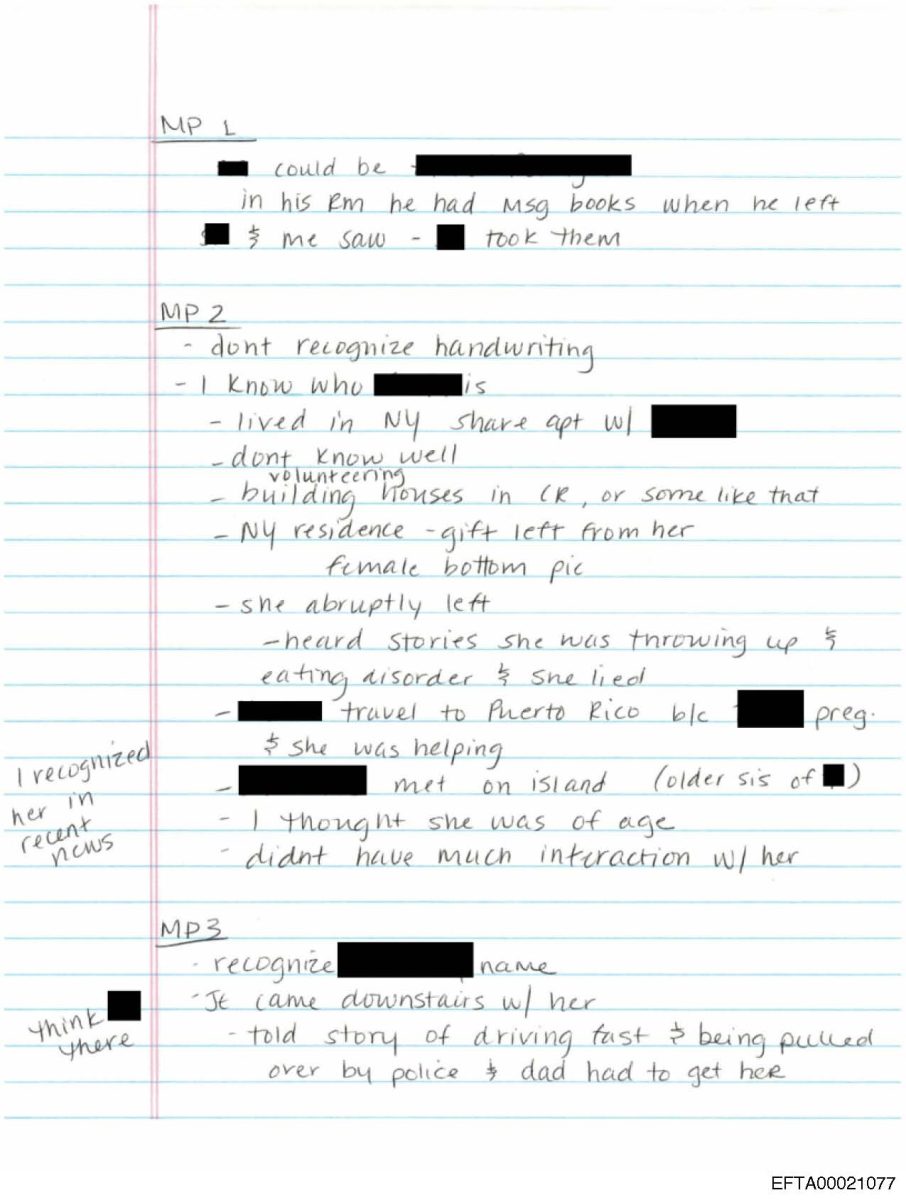 MP 1
could be
in his Rm he had Msg books when he left
& me saw - took them
MP 2
- dont recognize handwriting
- I know who is
- lived in NY share apt w/
- dont know well
volunteering
- building houses in CR, or some like that
- NY residence - gift left from her
female bottom pic
- she abruptly left
- heard stories she was throwing up &
eating disorder & she lied
- travel to Puerto Rico b/c preg.
& she was helping
I recognized
her in
recent
news
- met on island (older sis of )
- I thought she was of age
- didnt have much interaction w/ her
MP3
- recognize name
- JE came downstairs w/ her
think
there
- told story of driving fast & being pulled
over by police & dad had to get her
EFTA00021077